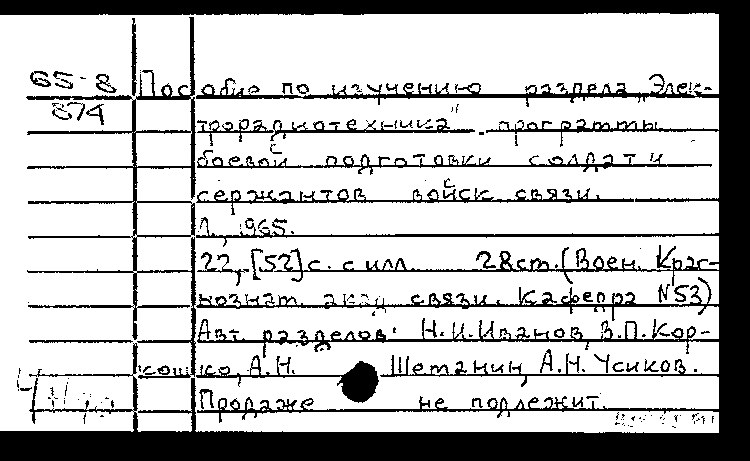 65-8
874
Пособие по изучению раздела „Элек-
трорадиотехника" программы
боевой подготовки солдат и
сержантов войск связи.
Л., 1965.
22, [52] с. с илл. 28 см. (Воен. Крас-
нознам. акад. связи. Кафедра №53)
Авт. разделов: Н.И.Иванов, В.П.Кор-
кошко, А.Н. Шетанин, А.Н. Усиков.
Продаже не подлежит.